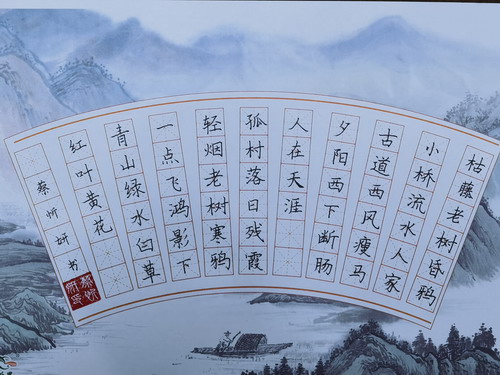 枯藤老树昏鸦
小桥流水人家
古道西风瘦马
夕阳西下断肠
人在天涯
孤村落日残霞
轻烟老树寒鸦
一点飞鸿影下
青山绿水臼草
红叶黄花
蔡忻妍书